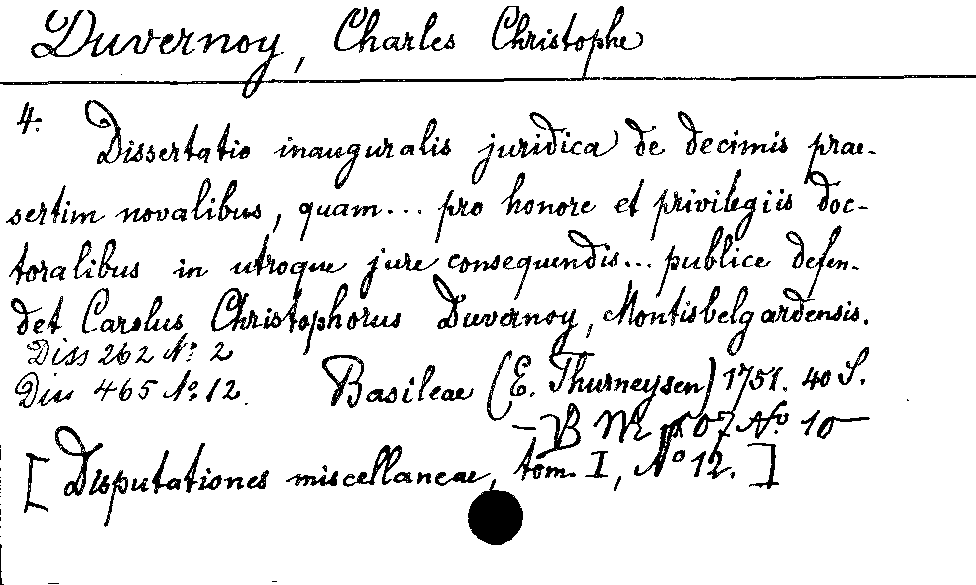 Duvernoy, Charles Christophe
4.
Dissertatio inauguralis juridica de decimis prae-
sertim novalibus, quam... pro honore et privilegiis doc-
toralibus in utroque jure consequendis... publice defen-
det Carolus Christophorus Duvernoy, Montisbelgardensis.
Diss 262 No. 2
Diss 465 No. 12. Basileae (E. Thurneysen) 1751. 40 S.
No 10
[Disputationes miscellaneae, tom. I, No 12.]